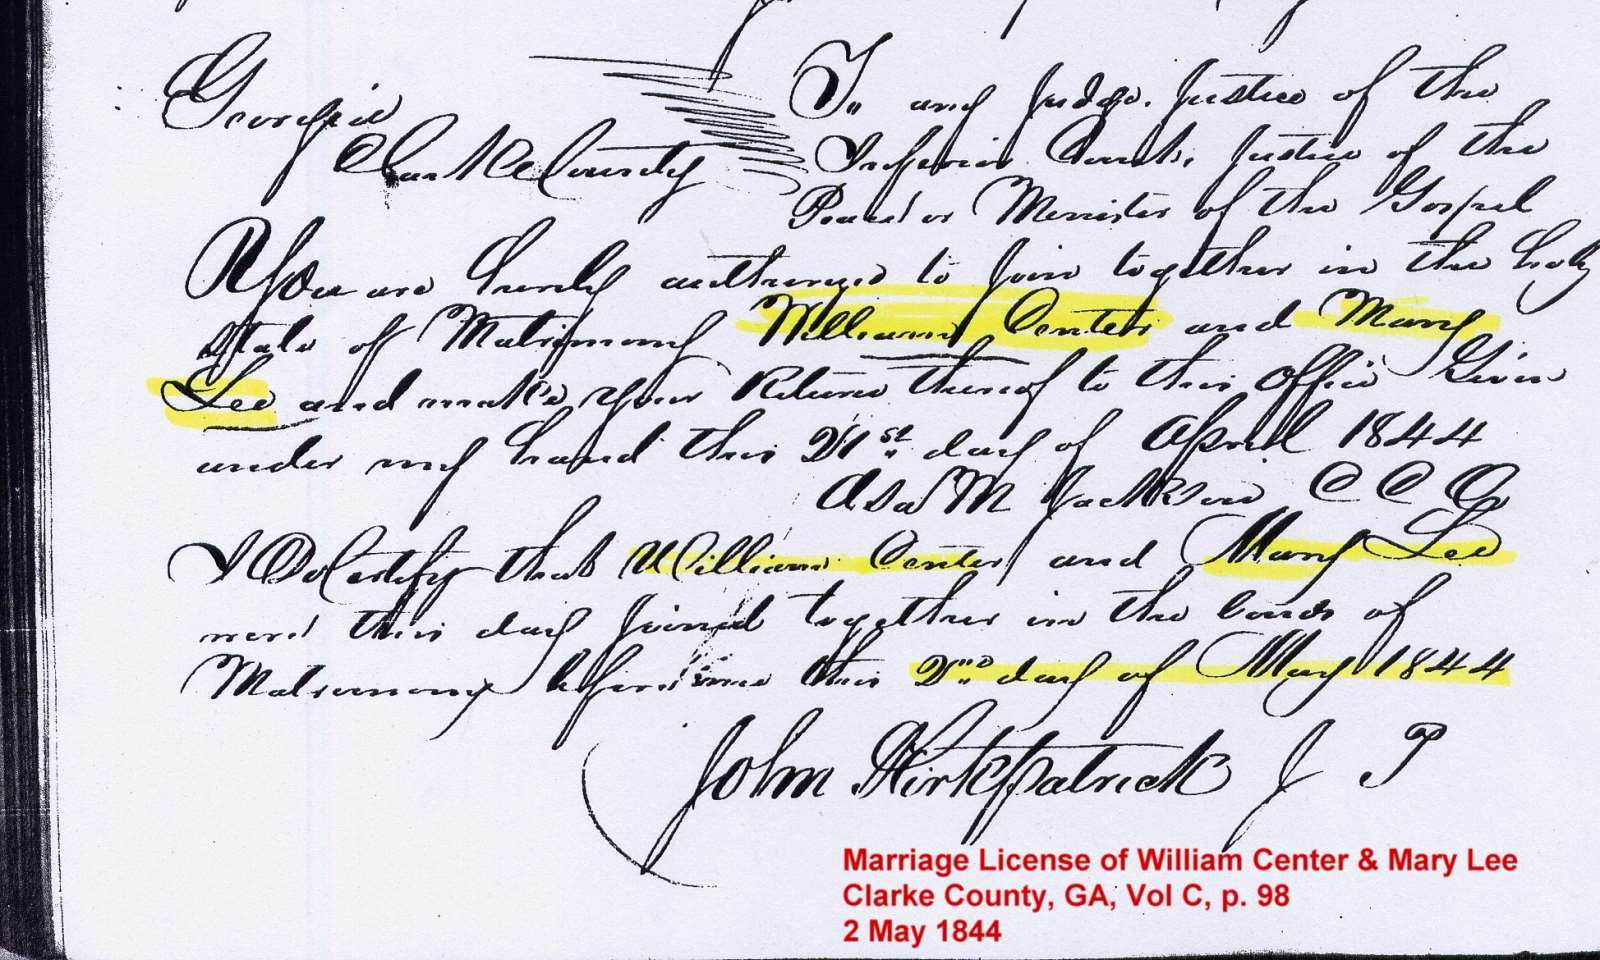 Georgia
Clarke County
To any Judge, Justice of the
Inferior Court, Justice of the
Peace or Minister of the Gospel
You are hereby authorized to join together in the holy
state of Matrimony William Center and Mary
Lee and make your Return thereof to this Office Given
under my hand this 21st day of April 1844
Asa M Jackson C C O
I Do Certify that William Center and Mary Lee
were this day joined together in the bonds of
Matrimony before me this 2nd day of May 1844
John Kirkpatrick J P
Marriage License of William Center & Mary Lee
Clarke County, GA, Vol C, p. 98
2 May 1844